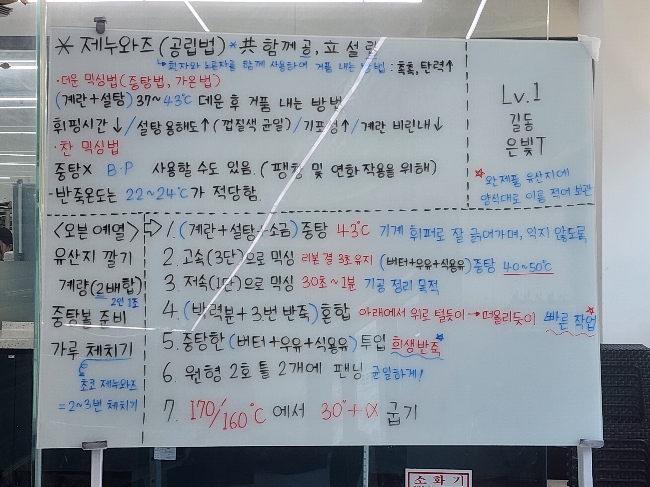 * 제누와즈 (공립법) * 共 함께 공, 立 설 립
↳흰자와 노른자를 함께 사용하여 거품 내는 방법 : 촉촉, 탄력↑
·더운 믹싱법(중탕법, 가온법)
(계란+설탕) 37~43℃ 데운 후 거품 내는 방법
휘핑시간↓/설탕 용해도↑(껍질색 균일)/기포성↑/계란 비린내↓
·찬 믹싱법
중탕X B.P 사용할 수도 있음. (팽창 및 연화 작용을 위해)
-반죽온도는 22~24℃가 적당함.
Lv.1
길동
은빛T
☆완제품 유산지에
양식대로 이름 적어 보관
<오븐 예열>
유산지 깔기
계량(2배합)
2인 1조
중탕볼 준비
가루 체치기
초코 제누와즈
=2~3번 체치기
⇨ 1. (계란+설탕+소금) 중탕 43℃ 기계 휘퍼로 잘 긁어가며, 익지 않도록
2. 고속(3단)으로 믹싱 리본 결 3초유지 (버터+우유+식용유) 중탕 40~50℃
3. 저속(1단)으로 믹싱 30초~1분 기공 정리 목적
4. (박력분+3번 반죽) 혼합 아래에서 위로 털듯이→떠올리듯이 빠른 작업☆
5. 중탕한 (버터+우유+식용유) 투입 희생반죽☆
6. 원형 2호 틀 2개에 팬닝 균일하게!
7. 170/160℃ 에서 30"+α 굽기
소화기